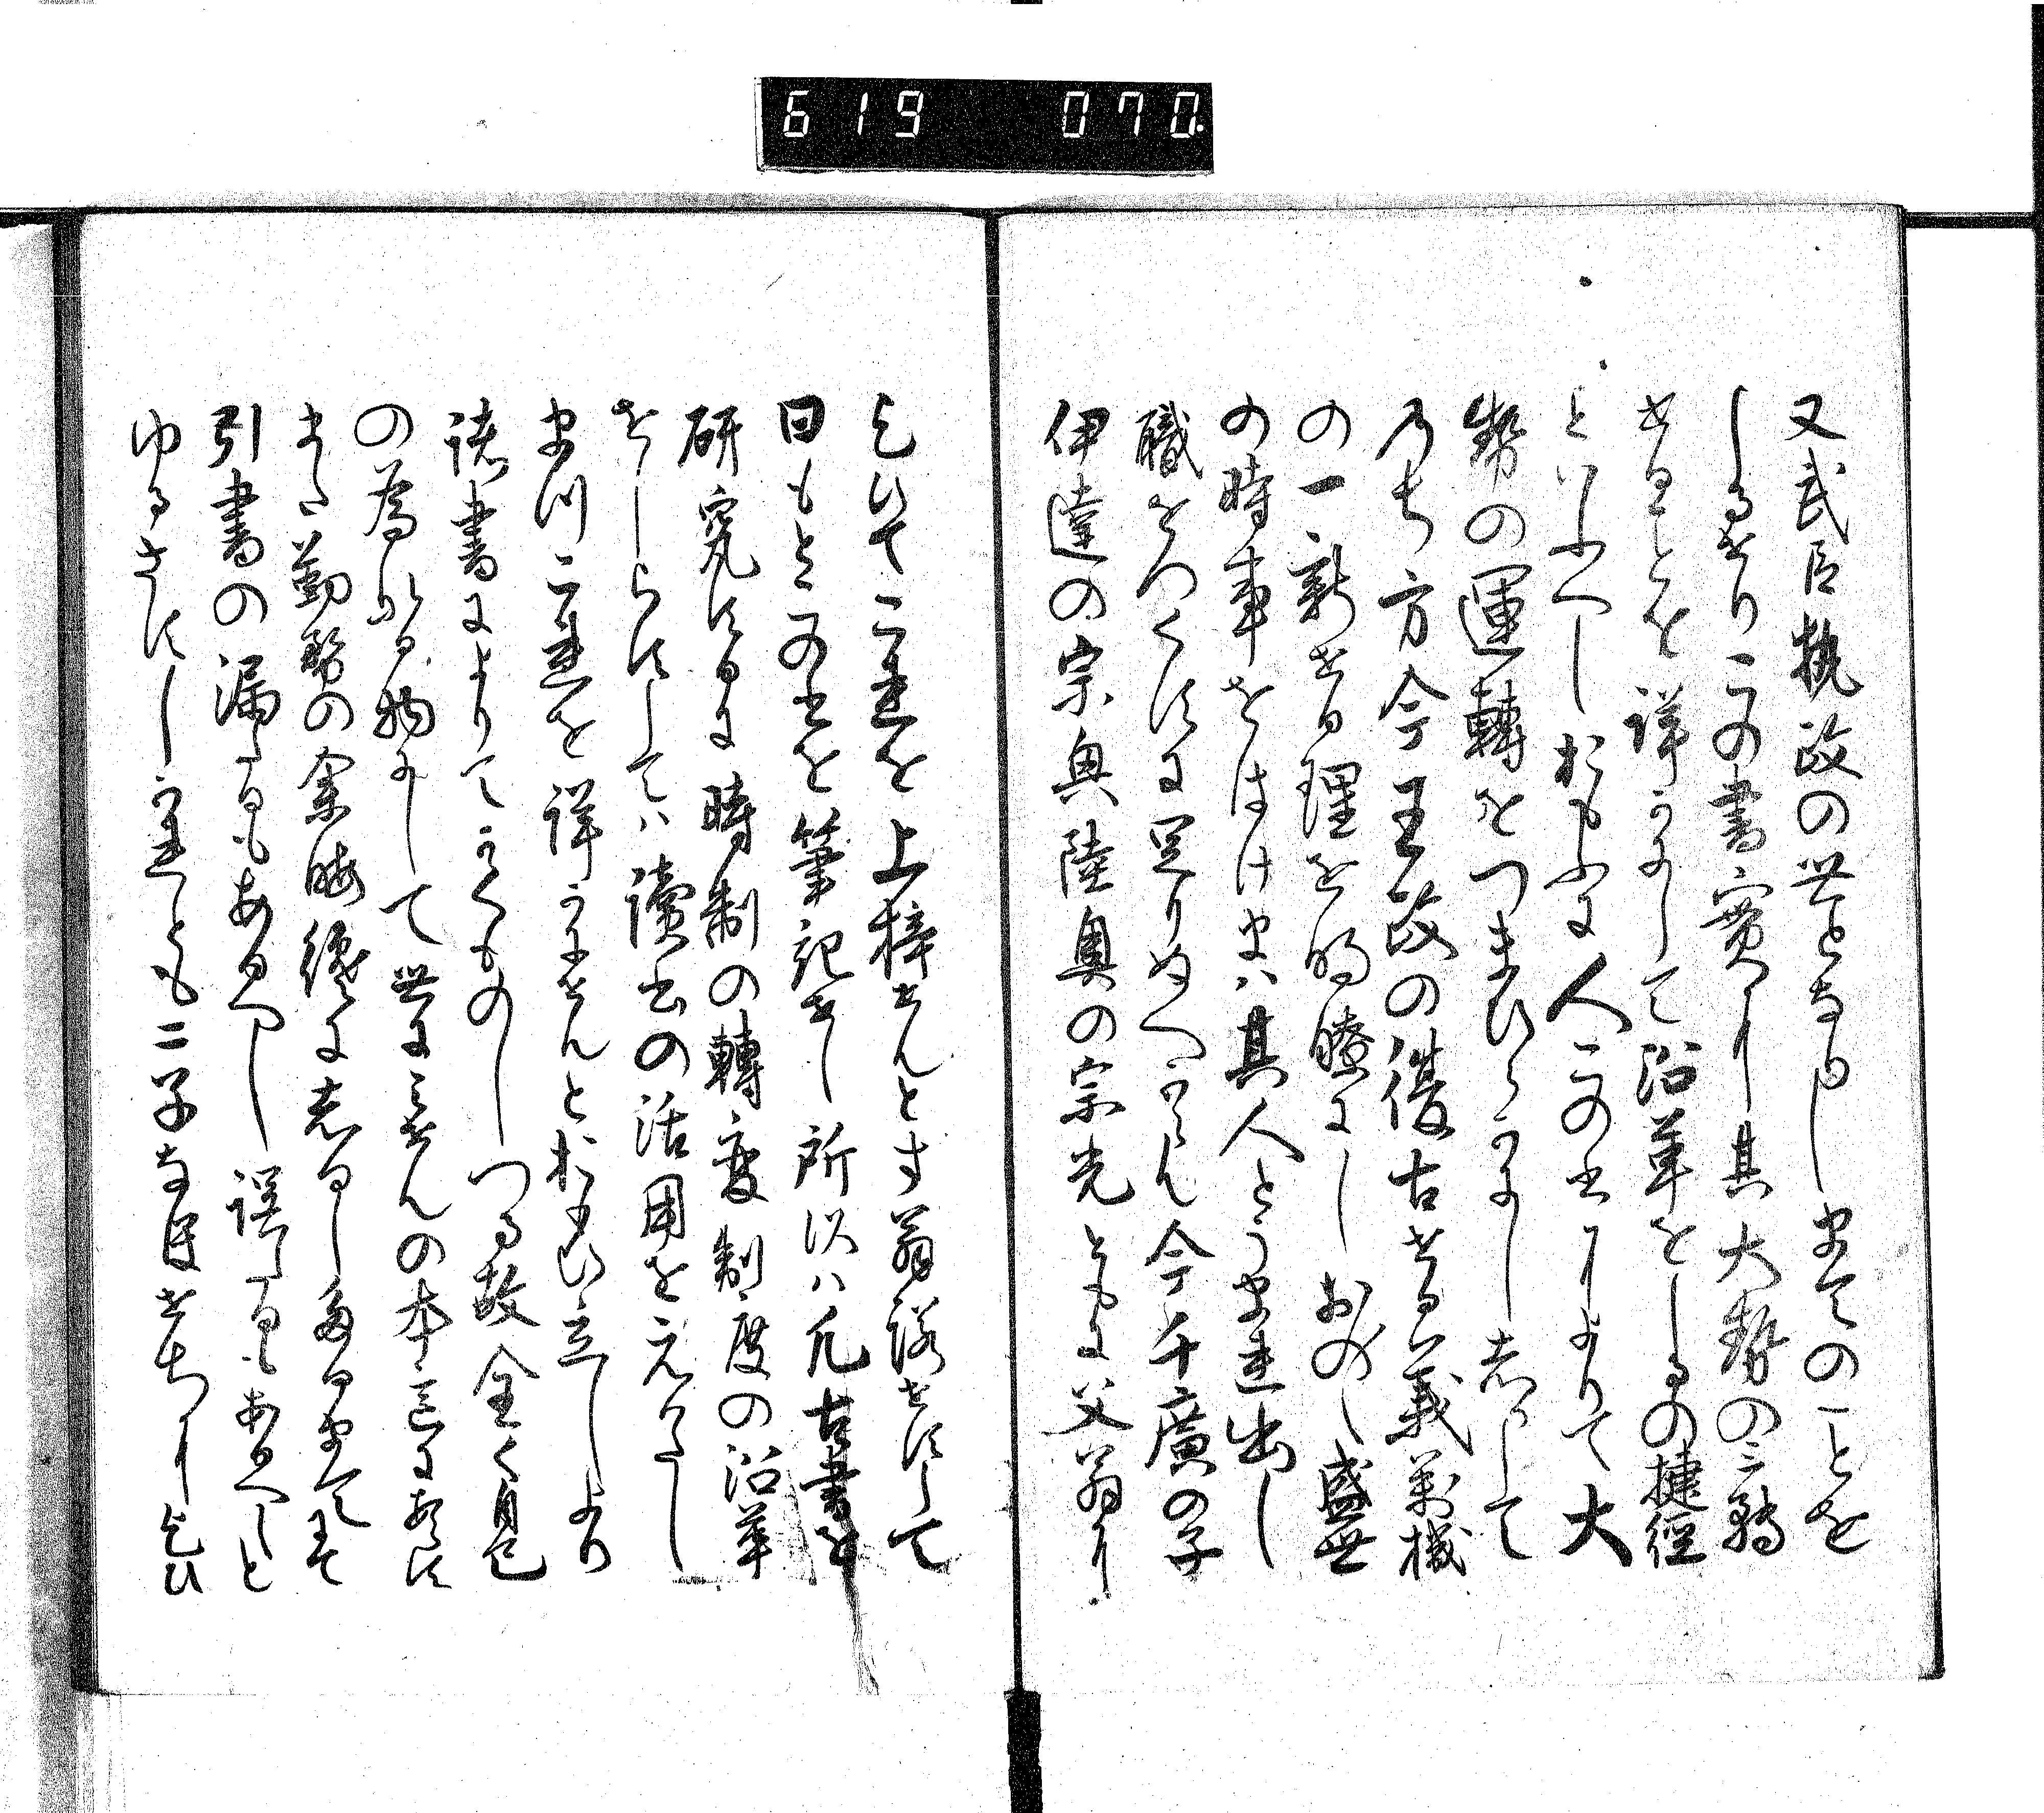 619 070
又武臣執政の世となりしまての一とを
しるせりこの書實に其大勢の三轉
せることを詳かにして沿革をしるの捷徑
といふへしおもふに人この書によりて大
勢の運轉をつまひらかにし志かして
乃ち方今王政の復古せる義萬機
の一新せる理を明瞭にしおのつ盛世
の時事をはけまは其人とうまれ出し
職をつくすに足りぬへからん今千廣の子
伊達の宗興陸奥の宗光ともに父翁に
こひてこれを上梓せんとす翁諾せすして
曰もとこの書を筆記せし所以ハ凡古書を
研究するに時制の轉変制度の沿革
をしらすしてハ讀書の活用をえかたし
まつこれを詳かにせんとおもひ立しより
諸書によりてかくものしつる故全く自己
の為かる物にして世に示さんの本意にあらす
また勤務の余暇纔に志るしたるまてにて
引書の漏たるもあるへし誤たるもあるへしと
ゆるさすしかれとも二子なほせちにこひ